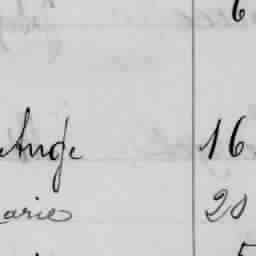 6
Ange 16
arie 20
5